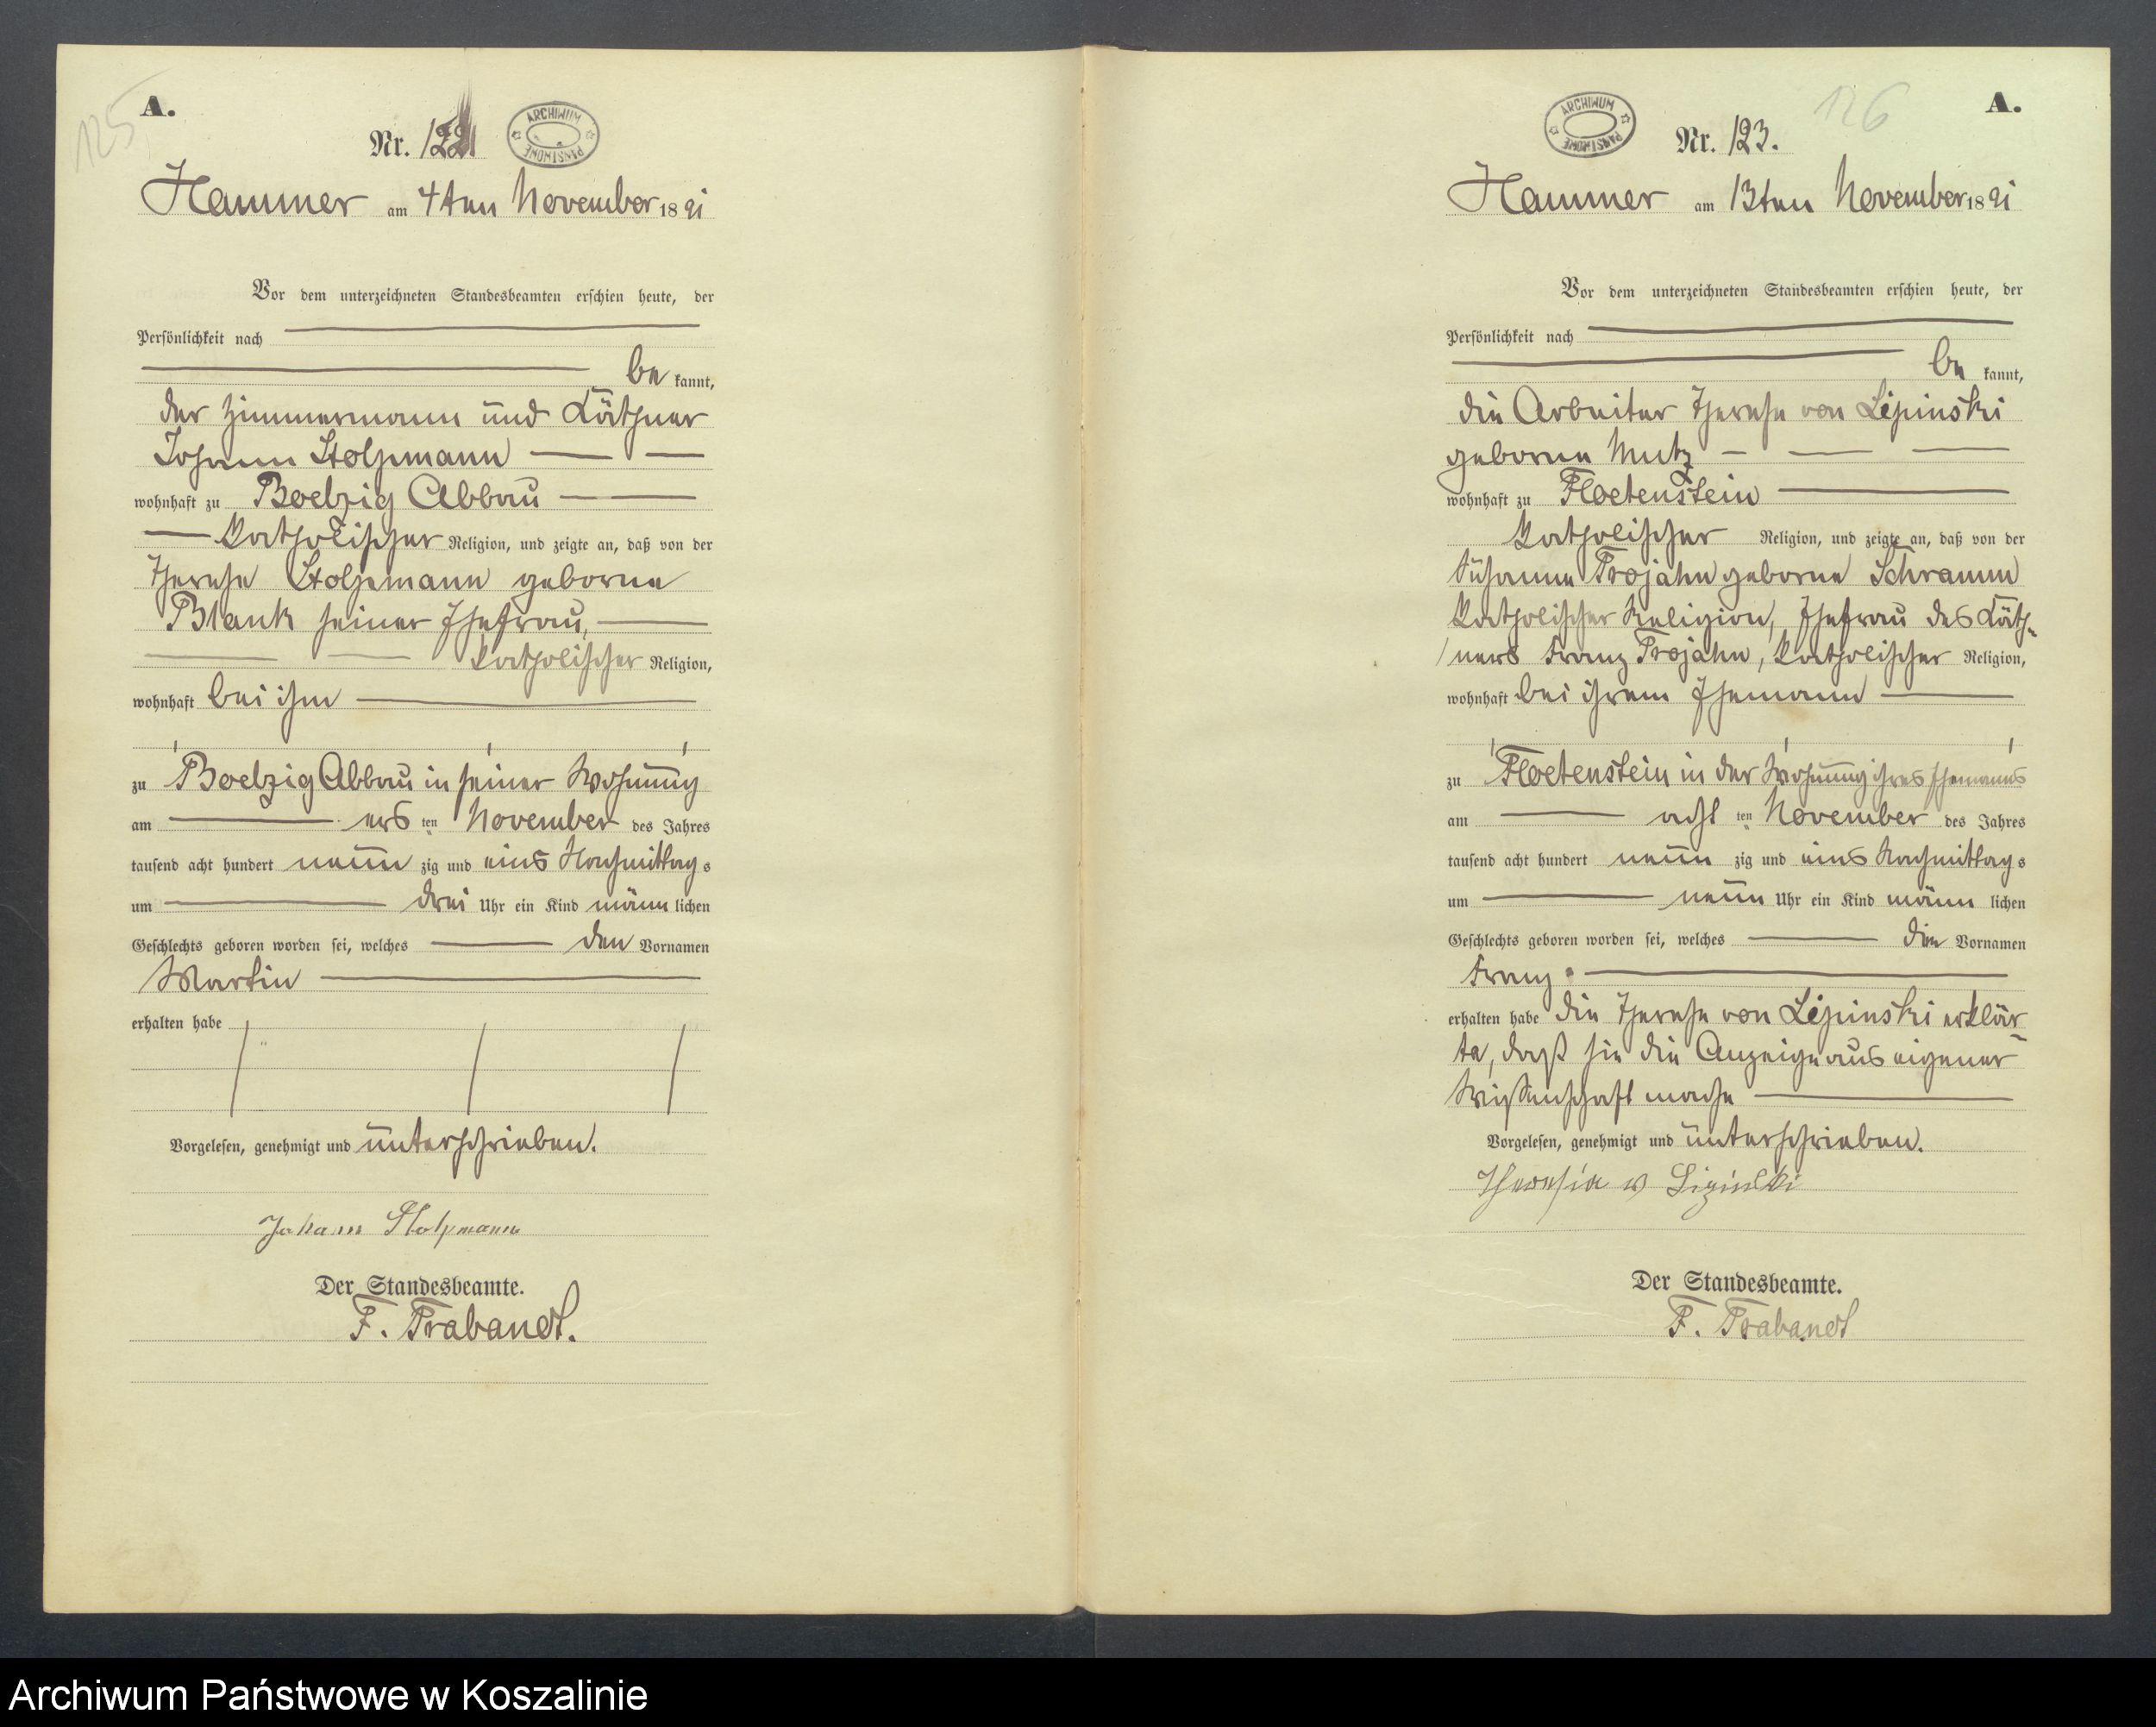 125
A.
Nr. 122
ARCHIWUM PAŃSTWOWE
Hammer am 4ten November 1891
Vor dem unterzeichneten Standesbeamten erschien heute, der
Persönlichkeit nach
be kannt,
der Zimmermann und Käthner
Johann Stolpmann
wohnhaft zu Boelzig Abbau
katholischer Religion, und zeigte an, daß von der
Therese Stolpmann geborne
Blank seiner Ehefrau,
katholischer Religion,
wohnhaft bei ihm
zu Boelzig Abbau in seiner Wohnung
am ers ten November des Jahres
tausend acht hundert neun zig und eins Nachmittag s
um drei Uhr ein Kind männ lichen
Geschlechts geboren worden sei, welches den Vornamen
Martin
erhalten habe
Vorgelesen, genehmigt und unterschrieben.
Johann Stolpmann
Der Standesbeamte.
F. Trabandt.
126
A.
ARCHIWUM PAŃSTWOWE
Nr. 123.
Hammer am 13ten November 1891
Vor dem unterzeichneten Standesbeamten erschien heute, der
Persönlichkeit nach
be kannt,
die Arbeiter Therese von Lipinski
geborne Mutz
wohnhaft zu Floetenstein
katholischer Religion, und zeigte an, daß von der
Susanna Trojahn geborne Schramm
katholischer Religion, Ehefrau des Käth-
ners Franz Trojahn, katholischer Religion,
wohnhaft bei ihrem Ehemann
zu Floetenstein in der Wohnung ihres Ehemanns
am acht ten November des Jahres
tausend acht hundert neun zig und eins Nachmittag s
um neun Uhr ein Kind männ lichen
Geschlechts geboren worden sei, welches die Vornamen
Franz
erhalten habe die Therese von Lipinski erklär-
te, daß sie die Anzeige aus eigener
Wissenschaft mache
Vorgelesen, genehmigt und unterschrieben.
Theresia v Lipinski
Der Standesbeamte.
F. Trabandt
Archiwum Państwowe w Koszalinie